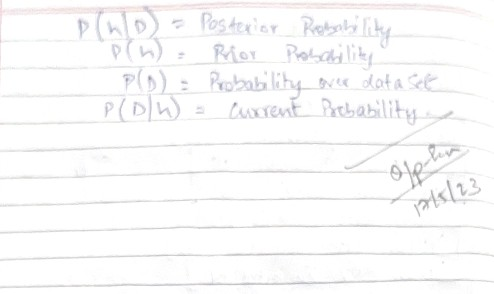 P(h|D) = Posterior Probability
P(h) = Prior Probability
P(D) = Probability over data set
P(D|h) = Current Probability.